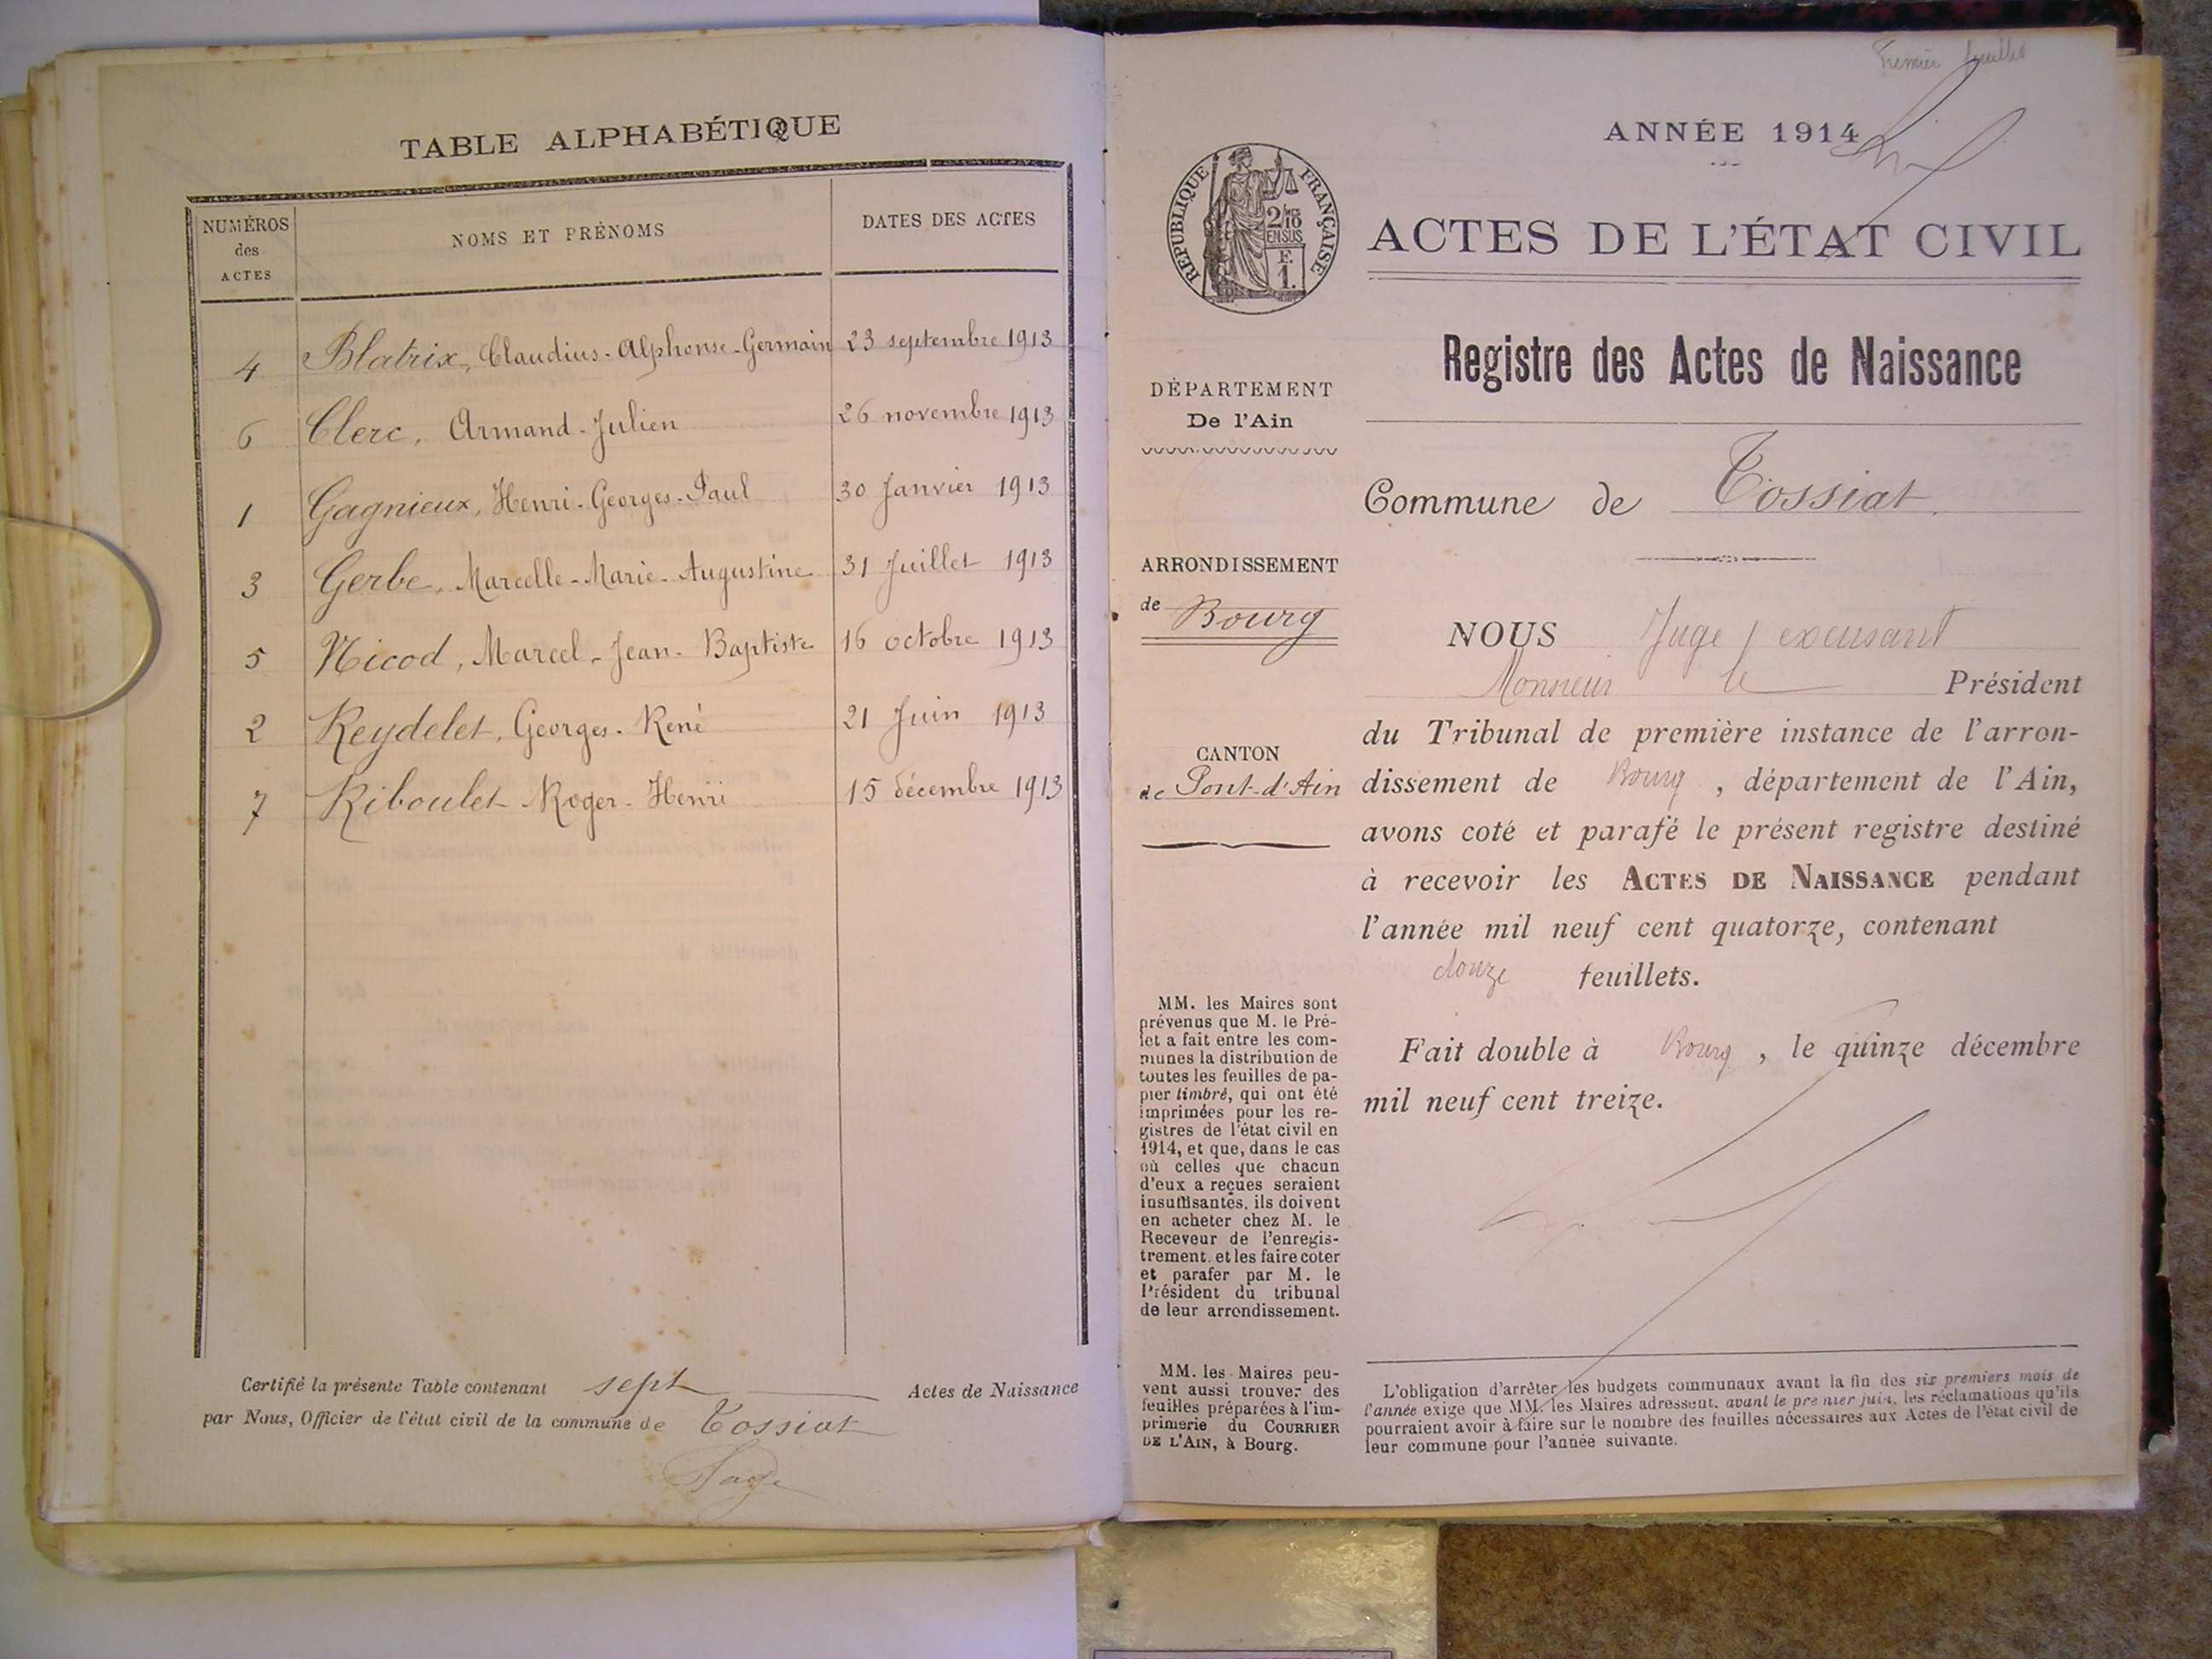 TABLE ALPHABÉTIQUE
NUMÉROS des ACTES
NOMS ET PRÉNOMS
DATES DES ACTES
4 Blatrix, Claudius-Alphonse-Germain 23 septembre 1913
6 Clerc, Armand-Julien 26 novembre 1913
1 Gagnieux, Henri-Georges-Paul 30 Janvier 1913
3 Gerbe, Marcelle-Marie-Augustine 31 Juillet 1913
5 Nicod, Marcel-Jean-Baptiste 16 octobre 1913
2 Reydelet, Georges-René 21 Juin 1913
7 Riboulet Roger-Henri 15 décembre 1913
Certifié la présente Table contenant sept Actes de Naissance
par Nous, Officier de l'état civil de la commune de Tossiat
Premier feuillet
ANNÉE 1914
RÉPUBLIQUE FRANÇAISE
2/10
EN SUS
F.
1.
ACTES DE L'ÉTAT CIVIL
Registre des Actes de Naissance
DÉPARTEMENT
De l'Ain
Commune de Tossiat
ARRONDISSEMENT
de Bourg
CANTON
de Pont-d'Ain
NOUS Juge excusant
Monsieur le Président
du Tribunal de première instance de l'arron-
dissement de Bourg, département de l'Ain,
avons coté et parafé le présent registre destiné
à recevoir les ACTES DE NAISSANCE pendant
l'année mil neuf cent quatorze, contenant
douze feuillets.
Fait double à Bourg, le quinze décembre
mil neuf cent treize.
MM. les Maires sont
prévenus que M. le Pré-
fet a fait entre les com-
munes la distribution de
toutes les feuilles de pa-
pier timbré, qui ont été
imprimées pour les re-
gistres de l'état civil en
1914, et que, dans le cas
où celles que chacun
d'eux a reçues seraient
insuffisantes, ils doivent
en acheter chez M. le
Receveur de l'enregis-
trement et les faire coter
et parafer par M. le
Président du tribunal
de leur arrondissement.
MM. les Maires peu-
vent aussi trouver des
feuilles préparées à l'im-
primerie du COURRIER
DE L'AIN, à Bourg.
L'obligation d'arrêter les budgets communaux avant la fin des six premiers mois de
l'année exige que MM. les Maires adressent, avant le premier juin, les réclamations qu'ils
pourraient avoir à faire sur le nombre des feuilles nécessaires aux Actes de l'état civil de
leur commune pour l'année suivante.